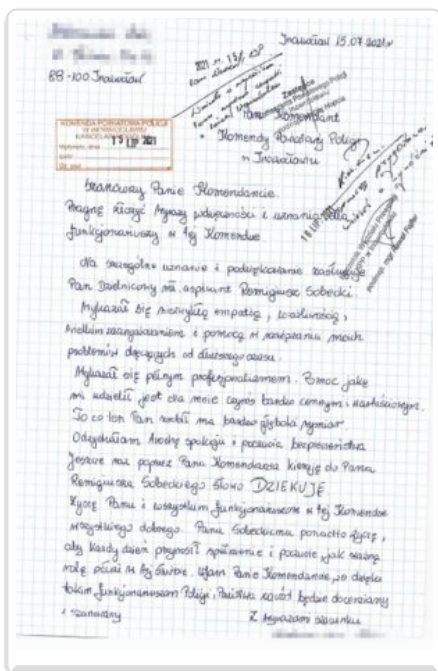 Inowrocław 15.07.2021r
88-100 Inowrocław
Pan Komendant
Komendy Powiatowej Policji
w Inowrocławiu
KOMENDA POWIATOWA POLICJI
W INOWROCŁAWIU
15 LIP 2021
Szanowny Panie Komendancie.
Pragnę złożyć wyrazy wdzięczności i uznania dla
funkcjonariuszy w tej Komendzie.
Na szczególne uznanie i podziękowanie zasługuje
Pan Dzielnicowy mł. aspirant Remigiusz Sobecki.
Wykazał się niezwykłą empatią, wrażliwością,
wielkim zaangażowaniem i pomocą w rozwiązaniu moich
problemów dręczących od dłuższego czasu.
Wykazał się pełnym profesjonalizmem. Pomoc jaką
mi udzielił jest dla mnie czymś bardzo cennym i wartościowym.
To co ten Pan zrobił ma bardzo głęboki wymiar.
Odzyskałam trochę spokoju i poczucia bezpieczeństwa
Jeszcze raz poprzez Pana Komendanta kieruję do Pana
Remigiusza Sobeckiego słowo DZIĘKUJĘ.
Życzę Panu i wszystkim funkcjonariuszom w tej Komendzie
wszystkiego dobrego. Panu Sobeckiemu ponadto życzę,
aby każdy dzień przynosił spełnienie i poczucie jak ważną
rolę pełni w tej służbie. Ufam Panie Komendancie, że dzięki
takim funkcjonariuszom Policji, Państwa zawód będzie doceniany
i szanowany
Z wyrazami szacunku